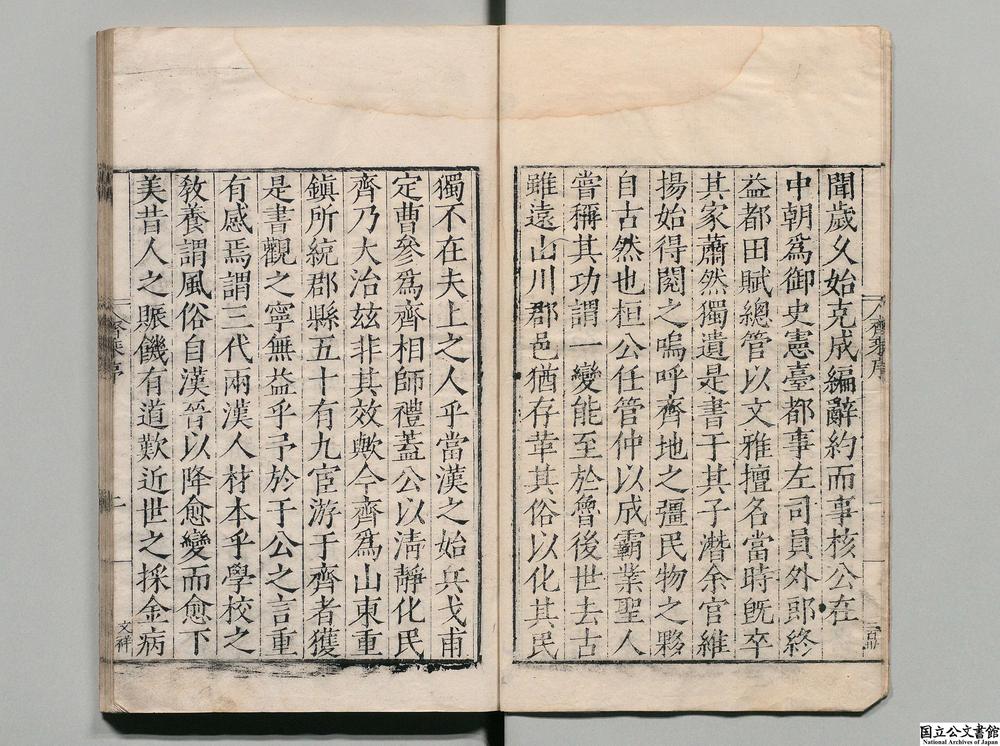 聞歲久始克成編辭約而事核公在
中朝爲御史憲臺都事左司員外郎終
益都田賦總管以文雅擅名當時旣卒
其家蕭然獨遺是書于其子潛余官維
揚始得閱之嗚呼齊地之彊民物之夥
自古然也桓公任管仲以成霸業聖人
嘗稱其功謂一變能至於魯後世去古
雖遠山川郡邑猶存革其俗以化其民
齊乘序
獨不在夫上之人乎當漢之始兵戈甫
定曹參爲齊相師禮蓋公以淸靜化民
齊乃大治茲非其效歟今齊爲山東重
鎮所統郡縣五十有九宦游于齊者獲
是書觀之寧無益乎予於于公之言重
有感焉謂三代兩漢人材本乎學校之
敎養謂風俗自漢晉以降愈變而愈下
美昔人之賑饑有道歎近世之採金病
齊乘序
文祥
国立公文書館
National Archives of Japan